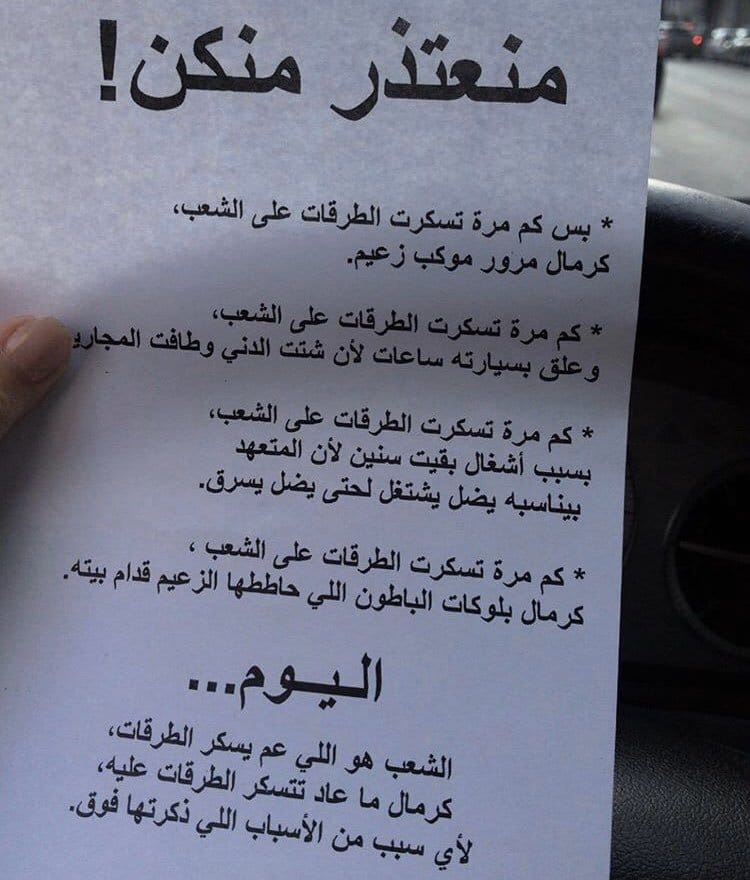 منعتذر منكن!
* بس كم مرة تسكرت الطرقات على الشعب،
كرمال مرور موكب زعيم.
* كم مرة تسكرت الطرقات على الشعب،
وعلق بسيارته ساعات لأن شتت الدني وطافت المجارير
* كم مرة تسكرت الطرقات على الشعب،
بسبب أشغال بقيت سنين لأن المتعهد
بيناسبه يضل يشتغل لحتى يضل يسرق.
* كم مرة تسكرت الطرقات على الشعب ،
كرمال بلوكات الباطون اللي حاططها الزعيم قدام بيته.
اليوم...
الشعب هو اللي عم يسكر الطرقات،
كرمال ما عاد تتسكر الطرقات عليه،
لأي سبب من الأسباب اللي ذكرتها فوق.